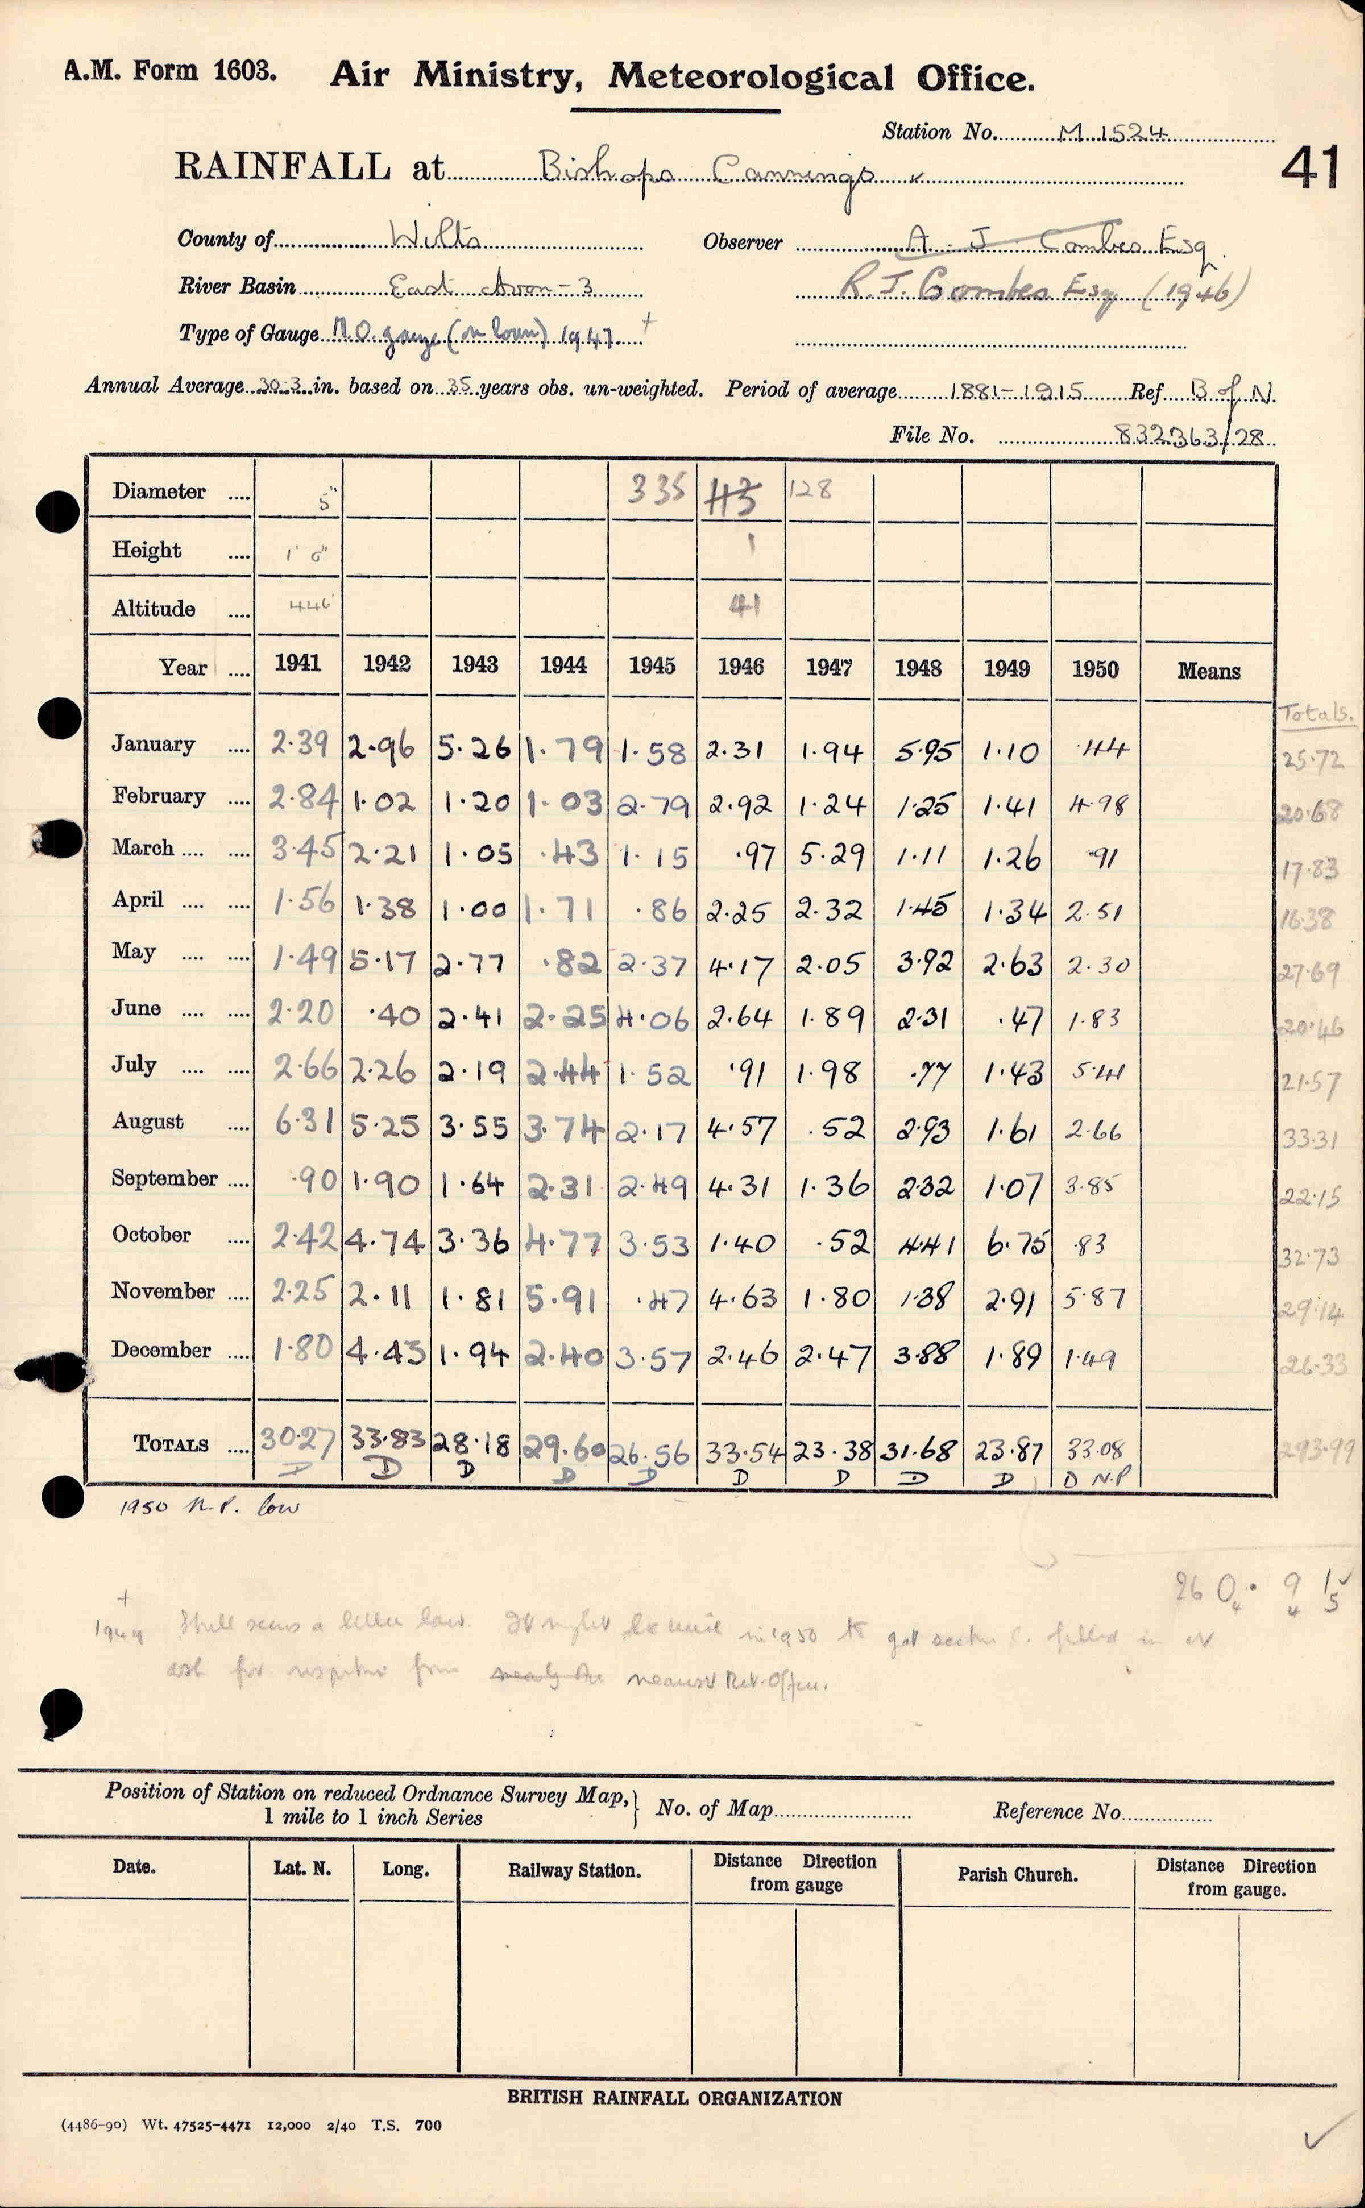 A.M. Form 1603. Air Ministry, Meteorological Office.
Station No. M 1524
41
RAINFALL at Bishops Cannings
County of Wilts Observer A J Combes Esq.
River Basin East Avon - 3 R.J. Combes Esq (1946)
Type of Gauge M.O. gauge (on loan) 1947. +
Annual Average 30.3 in. based on 35 years obs. un-weighted. Period of average 1881-1915 Ref B of N.
File No. 832363/28
Diameter .... 5" 335 113 128
Height .... 1' 0" 1
Altitude .... 446' 41
Year .... 1941 1942 1943 1944 1945 1946 1947 1948 1949 1950 Means
Totals.
January .... 2.39 2.96 5.26 1.79 1.58 2.31 1.94 5.95 1.10 .44 25.72
February .... 2.84 1.02 1.20 1.03 2.79 2.92 1.24 1.25 1.41 4.98 20.68
March .... .... 3.45 2.21 1.05 .43 1.15 .97 5.29 1.11 1.26 .91 17.83
April .... .... 1.56 1.38 1.00 1.71 .86 2.25 2.32 1.45 1.34 2.51 16.38
May .... .... 1.49 5.17 2.77 .82 2.37 4.17 2.05 3.92 2.63 2.30 27.69
June .... .... 2.20 .40 2.41 2.25 4.06 2.64 1.89 2.31 .47 1.83 20.46
July .... .... 2.66 2.26 2.19 2.44 1.52 .91 1.98 .77 1.43 5.41 21.57
August .... 6.31 5.25 3.55 3.74 2.17 4.57 .52 2.93 1.61 2.66 33.31
September .... .90 1.90 1.64 2.31 2.49 4.31 1.36 2.32 1.07 3.85 22.15
October .... 2.42 4.74 3.36 4.77 3.53 1.40 .52 4.41 6.75 .83 32.73
November .... 2.25 2.11 1.81 5.91 .47 4.63 1.80 1.38 2.91 5.87 29.14
December .... 1.80 4.43 1.94 2.40 3.57 2.46 2.47 3.88 1.89 1.49 26.33
TOTALS .... 30.27 33.83 28.18 29.60 26.56 33.54 23.38 31.68 23.87 33.08 293.99
D D D D D D D D D D N.P
1950 N.P. low
260. 9 1
4 4 5
+
1949 Still seems a little low. It might be in 1950 to get section filled in or
ask for from nearest Met. Office.
Position of Station on reduced Ordnance Survey Map,} No. of Map Reference No.
1 mile to 1 inch Series
Date. Lat. N. Long. Railway Station. Distance Direction from gauge Parish Church. Distance Direction from gauge.
BRITISH RAINFALL ORGANIZATION
(4486-90) Wt. 47525-4471 12,000 2/40 T.S. 700